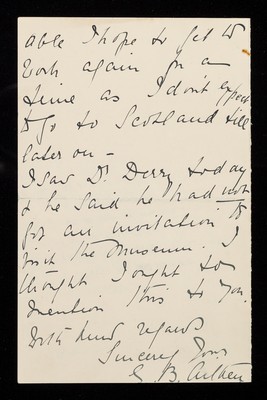 able I hope to get to
work again for a
time as I don't expect
to go to Scotland till
later on –
I saw Dr. Derry today
& he said he had not
got an invitation to
visit the Museum. I
thought I ought to
mention this to you.
With kind regards
Sincerely Yours
B. Aitken